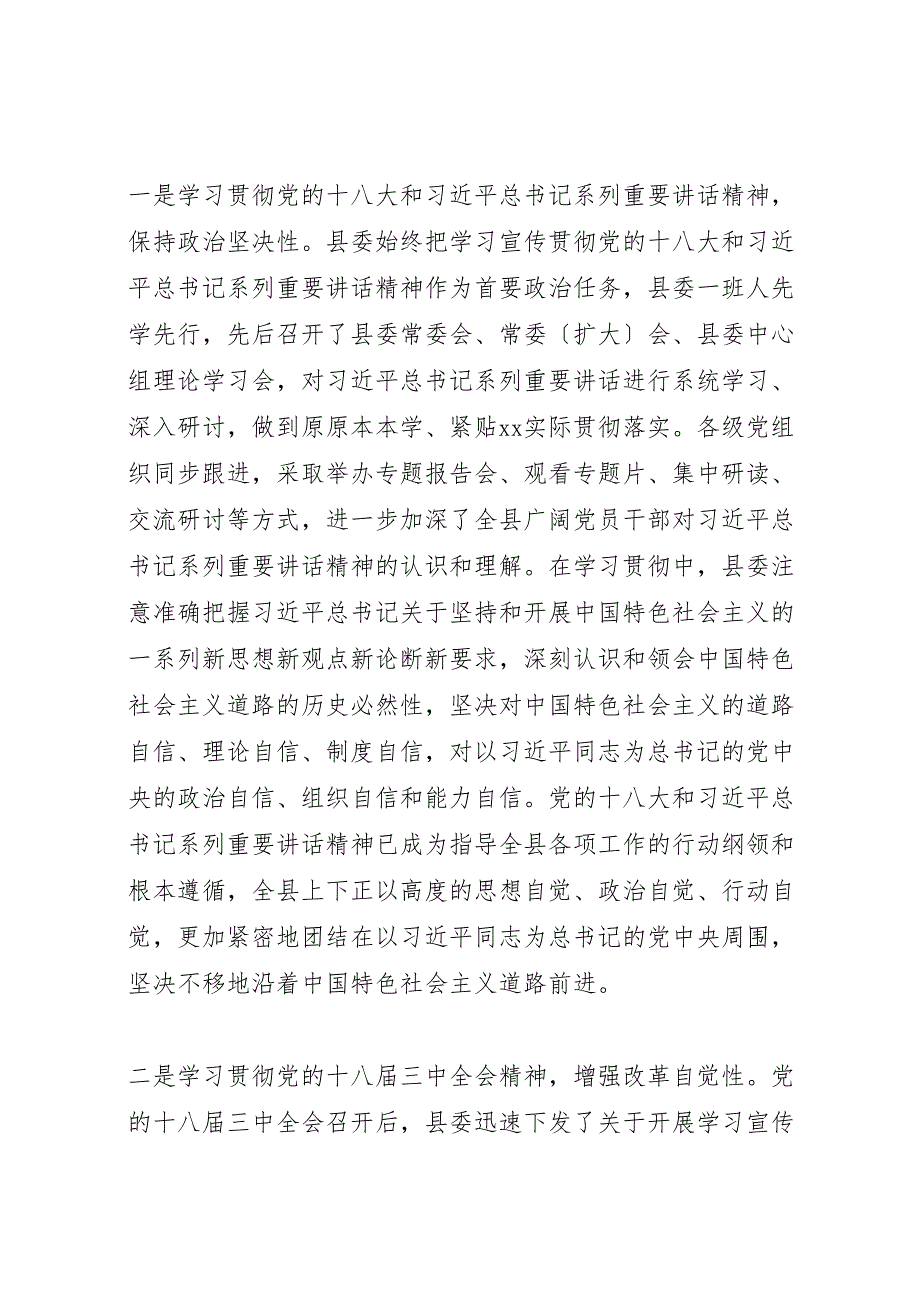 一是学习贯彻党的十八大和习近平总书记系列重要讲话精神，
保持政治坚决性。县委始终把学习宣传贯彻党的十八大和习近
平总书记系列重要讲话精神作为首要政治任务，县委一班人先
学先行，先后召开了县委常委会、常委〔扩大〕会、县委中心
组理论学习会，对习近平总书记系列重要讲话进行系统学习、
深入研讨，做到原原本本学、紧贴xx实际贯彻落实。各级党组
织同步跟进，采取举办专题报告会、观看专题片、集中研读、
交流研讨等方式，进一步加深了全县广阔党员干部对习近平总
书记系列重要讲话精神的认识和理解。在学习贯彻中，县委注
意准确把握习近平总书记关于坚持和开展中国特色社会主义的
一系列新思想新观点新论断新要求，深刻认识和领会中国特色
社会主义道路的历史必然性，坚决对中国特色社会主义的道路
自信、理论自信、制度自信，对以习近平同志为总书记的党中
央的政治自信、组织自信和能力自信。党的十八大和习近平总
书记系列重要讲话精神已成为指导全县各项工作的行动纲领和
根本遵循，全县上下正以高度的思想自觉、政治自觉、行动自
觉，更加紧密地团结在以习近平同志为总书记的党中央周围，
坚决不移地沿着中国特色社会主义道路前进。
二是学习贯彻党的十八届三中全会精神，增强改革自觉性。党
的十八届三中全会召开后，县委迅速下发了关于开展学习宣传